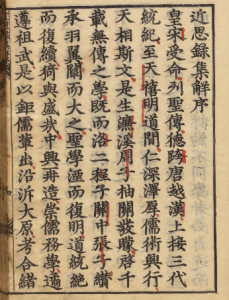 近思錄集解序
皇宋受命列聖傳德跨唐越漢上接三代
統紀至天禧明道間仁深澤厚儒術興行
天相斯文是生濂溪周子抽關發矇啓千
載無傳之學旣而洛二程子關中張子纘
承羽翼闡而大之聖學湮而復明道統絕
而復續猗與盛哉中興再造崇儒務學遹
遵祖武是以鉅儒輩出沿泝大原考合緒